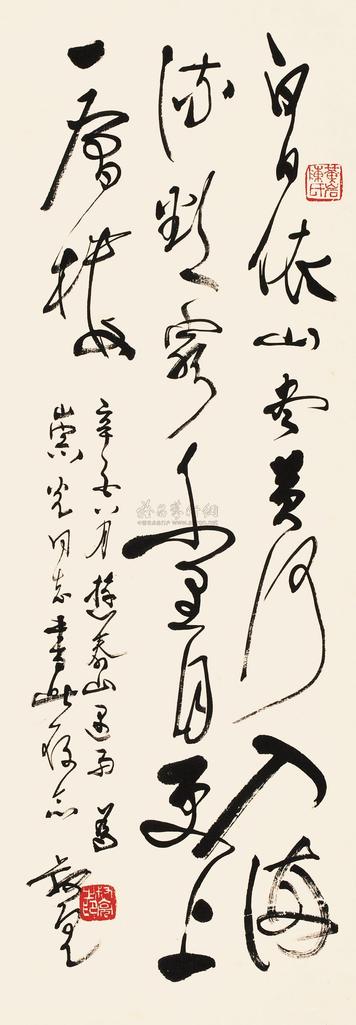 白日依山尽黄河入海
流欲穷千里目更上
一层楼
辛酉八月游泰山遇雨为
崇光同志书此